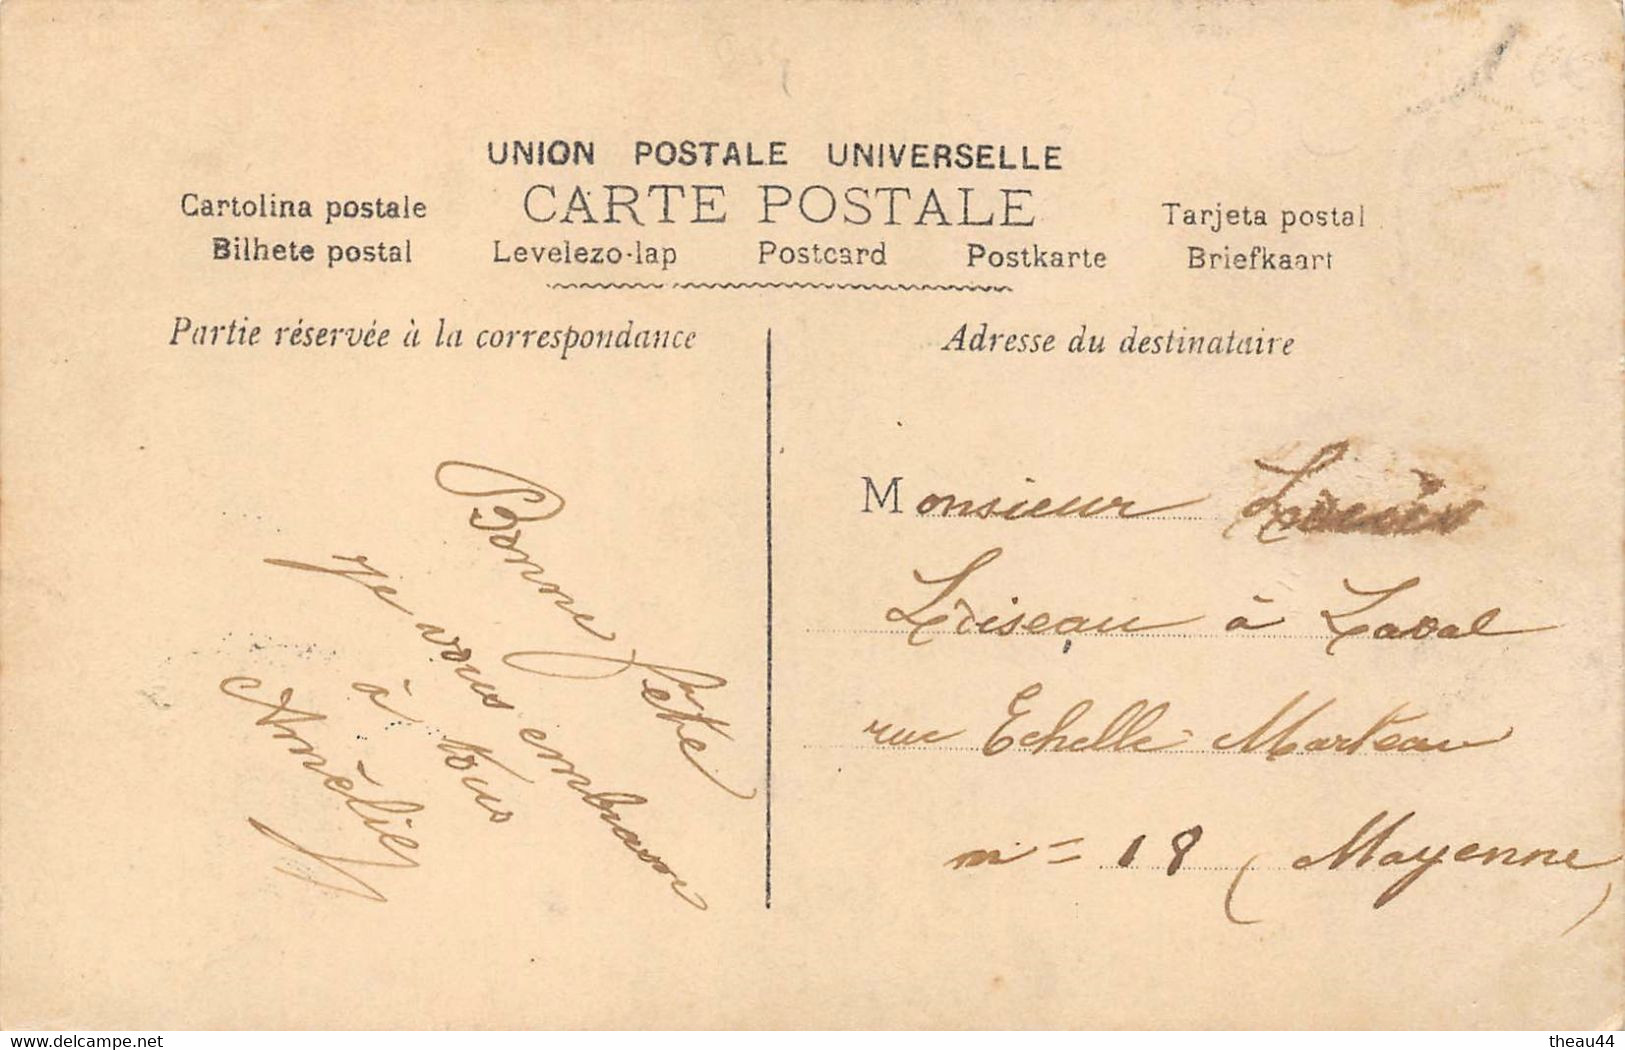 UNION POSTALE UNIVERSELLE
CARTE POSTALE
Cartolina postale
Tarjeta postal
Bilhete postal
Levelezo-lap
Postcard
Postkarte
Briefkaart
Partie réservée à la correspondance
Bonne fête
je vous embrasse
à tous
Amèlie
Adresse du destinataire
Monsieur
Loiseau à Laval
rue Echelle Marteau
n= 18 (Mayenne)
www.delcampe.net
theau44